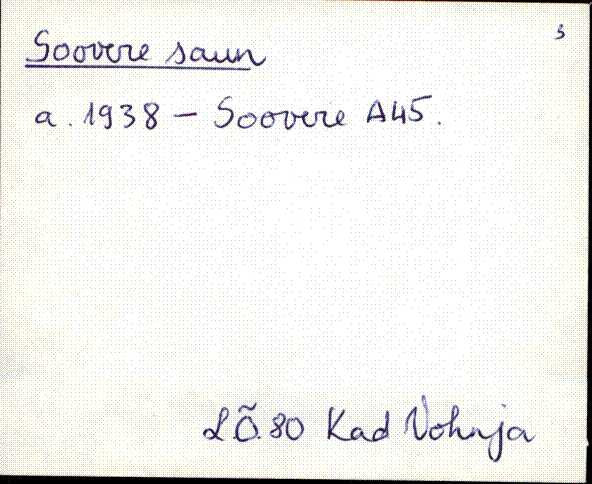 3
Soovere saun
a. 1938 – Soovere A45.
LÕ.80 Kad Vohnja